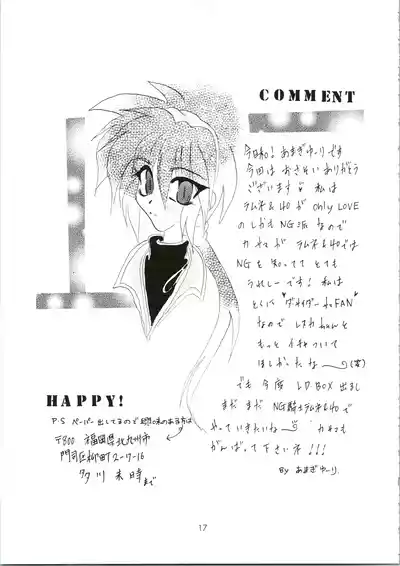 COMMENT
今日和！あまぎゆーりです
今回は おさそい ありがとう
ございます 私は
ラムネ&40が only LOVE
のしかも NG派 なので
が ラムネ&40では
NGを 知ってて とても
うれしーです！私は
とくに "ダ・サイダーのFAN"
なので レスカちゃんと
もっと イチャついて
ほしかったな (笑)
でも 今度 LD-BOX 出ますし
まだまだ NG騎士ラムネ&40で
やっていきたいな
がんばって下さいネ!!!
By あまぎゆーり.
HAPPY!
P.S ペーパー出してるので興味のある方は
〒800 福岡県北九州市
門司区柳町2-7-16
まで
17